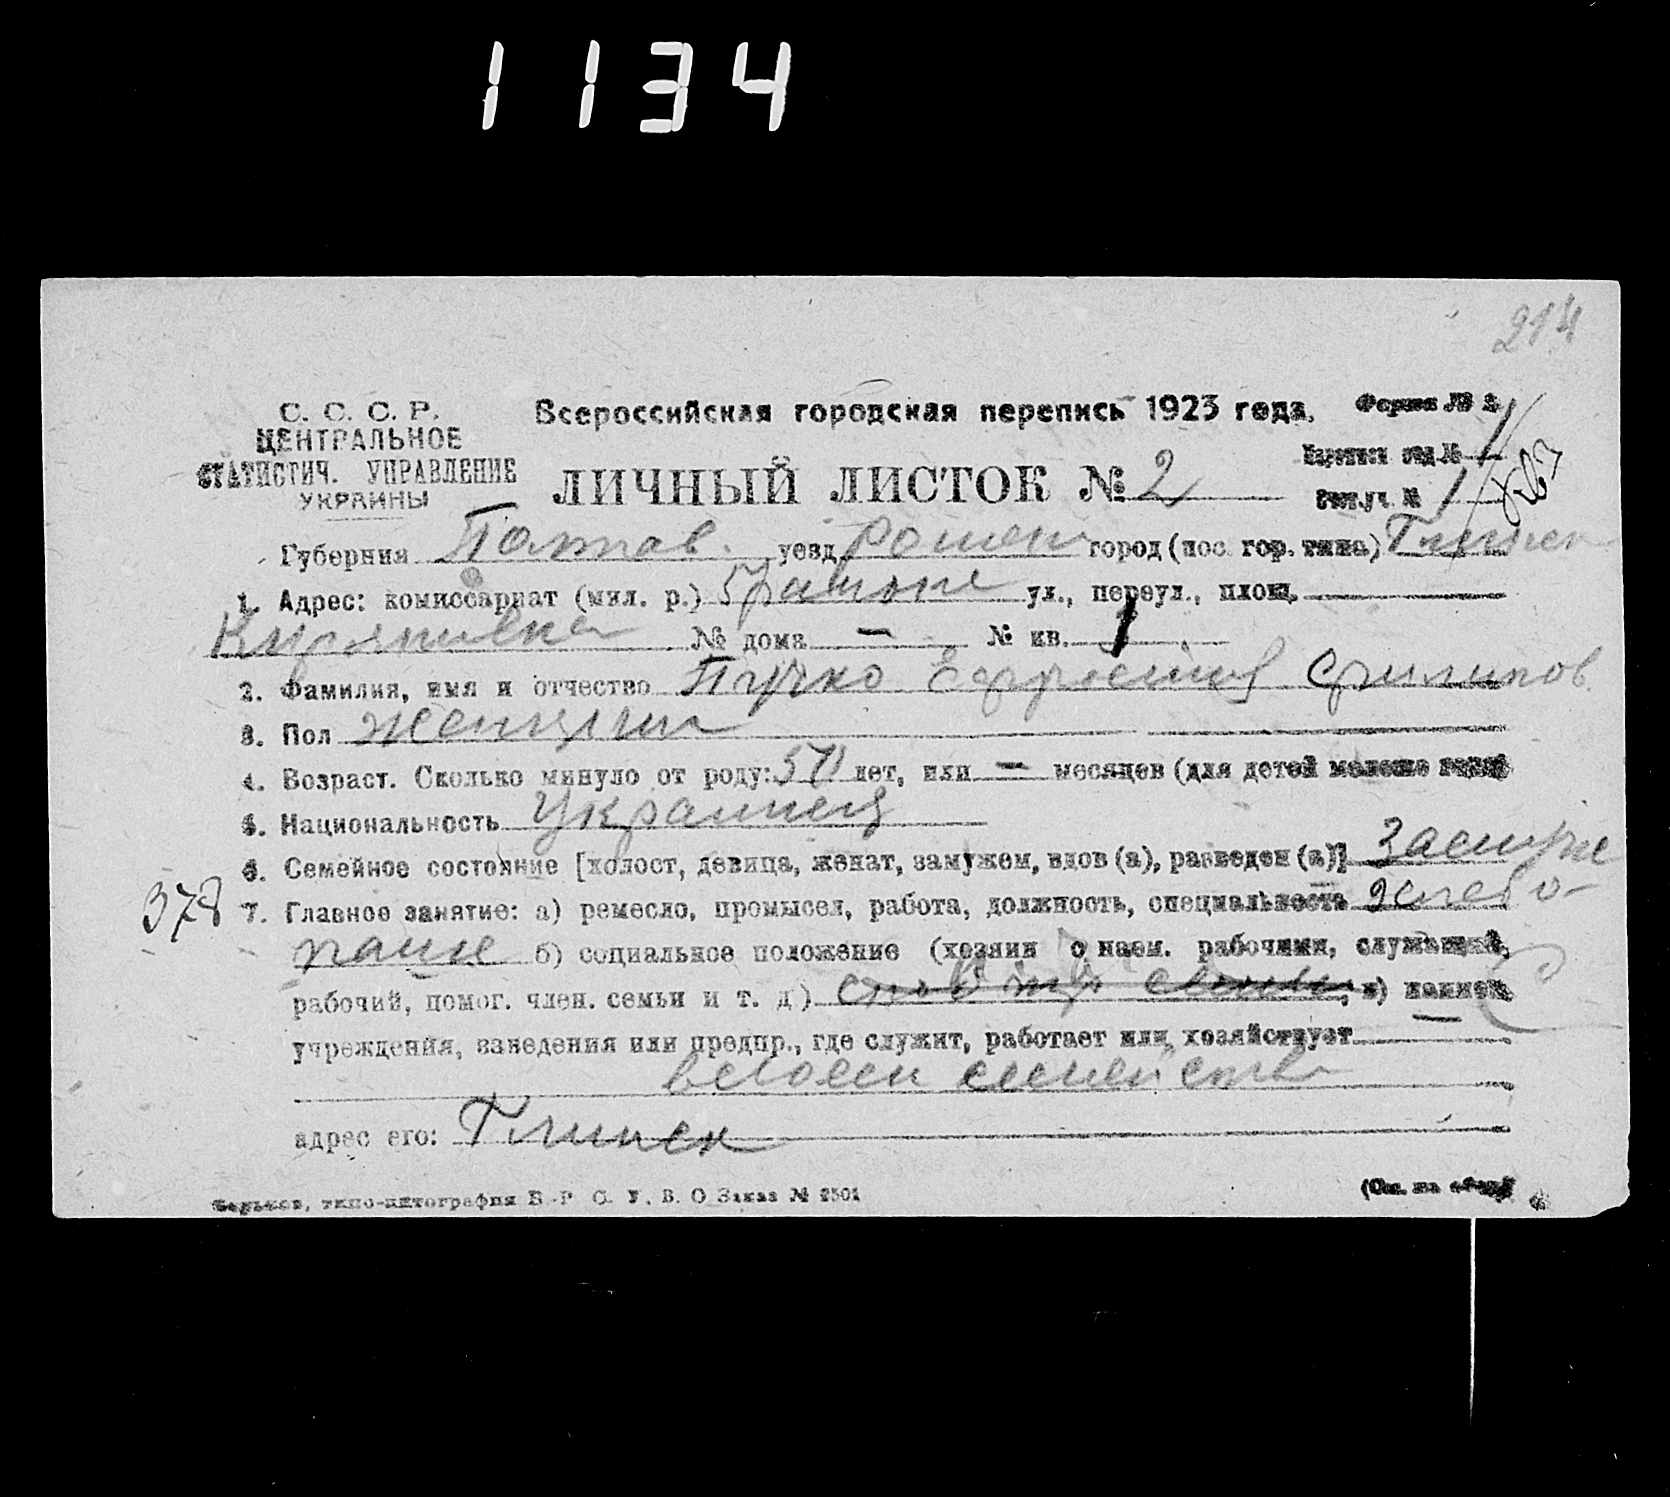 1134
214
С. С. С. Р.
ЦЕНТРАЛЬНОЕ
СТАТИСТИЧ. УПРАВЛЕНИЕ
УКРАИНЫ
Всероссийская городская перепись 1923 года.
Форма № 2
ЛИЧНЫЙ ЛИСТОК № 2
№ 1
Счет.уч. № 1
Губерния Полтав. уезд Ромен город (пос. гор. типа) Глинск
1. Адрес: комиссариат (мил. р.) ул., переул., площ.
№ дома — № кв. 1
2. Фамилия, имя и отчество Пучко Филипов.
3. Пол женщина
4. Возраст. Сколько минуло от роду: лет, или — месяцев (для детей моложе года)
5. Национальность Украинец
6. Семейное состояние [холост, девица, женат, замужем, вдов (а), разведен (а)] Замуже
378 7. Главное занятие: а) ремесло, промысел, работа, должность, специальность хлебо-
паше б) социальное положение (хозяин с наем. рабочими, служащий,
рабочий, помог. член. семьи и т. д.) в) наимен.
учреждения, заведения или предпр., где служит, работает или хозяйствует
в своем семействе
адрес его: Глинск
Харьков, типо-литография В. Р С. У. В. О Заказ № 2501
(См. на обор.)